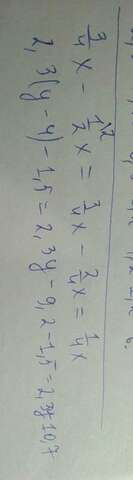 3/4 x - 1/2 x = 3/4 x - 2/4 x = 1/4 x
2,3(y-4)-1,5=2,3y-9,2-1,5=2,3y-10,7